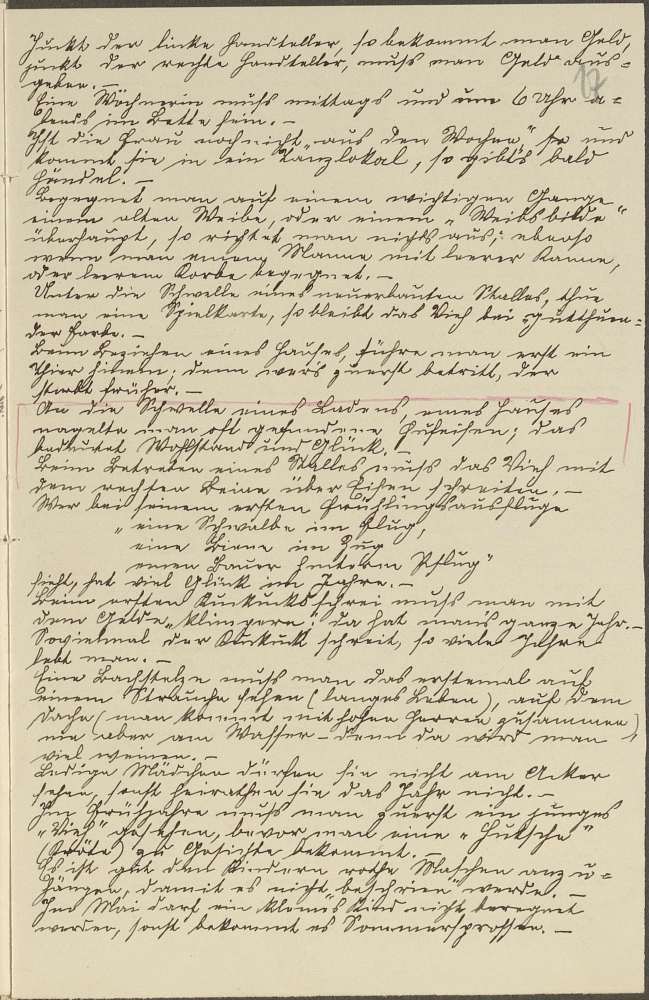 Juckt der linke Handteller, so bekommt man Geld,
juckt der rechte Handteller, muß man Geld aus=
geben. –
17
Eine Wöchnerin muß mittags und um 6 Uhr a=
bends im Bette sein. –
Ist die Frau noch nicht „aus den Wochen" so und
kommt sie in ein Tanzlokal, so gibt's bald
Händel. –
Begegnet man auf einem wichtigen Gange
einem alten Weibe, oder einem „Weibsbilde"
überhaupt, so richtet man nichts aus; ebenso
wenn man einem Manne mit leerer Kanne,
oder leerem Korbe begegnet. –
Unter die Schwelle eines neuerbauten Stalles, thue
man eine Spielkarte, so bleibt das Vieh bei „gutthuen=
der Farbe. –
Beim Beziehen eines Hauses, führe man erst ein
Thier hinein; denn wer's zuerst betritt, der
stirbt früher. –
An die Schwelle eines Ladens, eines Hauses
nagelte man oft gefundene Hufeisen; das
bedeutet Wohlstand und Glück. –
Beim Betreten eines Stalles muß das Vieh mit
dem rechten Beine über Eisen schreiten. –
Wer bei seinem ersten Frühlingsausfluge
„eine Schwalbe im Flug,
eine Biene im Zug
einen Bauer hinterm Pflug"
sieht, hat viel Glück im Jahre. –
Beim ersten Kuckucksschrei muß man mit
dem Gelde „klimpern: da hat man's ganze Jahr. –
Sovielmal der Kuckuck schreit, so viele Jahre
lebt man. –
Eine Bachstelze muß man das erstemal auf
einem Strauche sehen (langes Leben), auf dem
Dache (man kommt mit hohen Herren zusammen)
nie aber am Wasser – denn da wird man
viel weinen. –
Ledige Mädchen dürfen sie nicht am Acker
sehen, sonst heirathen sie das Jahr nicht. –
Im Frühjahre muß man zuerst ein junges
„Vieh" gesehen, bevor man eine „Hutsche"
(Kröte) zu Gesichte bekommt. –
Es ist gut den Kindern rothe Maschen anzu=
hängen, damit es nicht „beschrien" werde. –
Im Mai darf ein kleines Kind nicht beregnet
werden, sonst bekommt es Sommersprossen. –